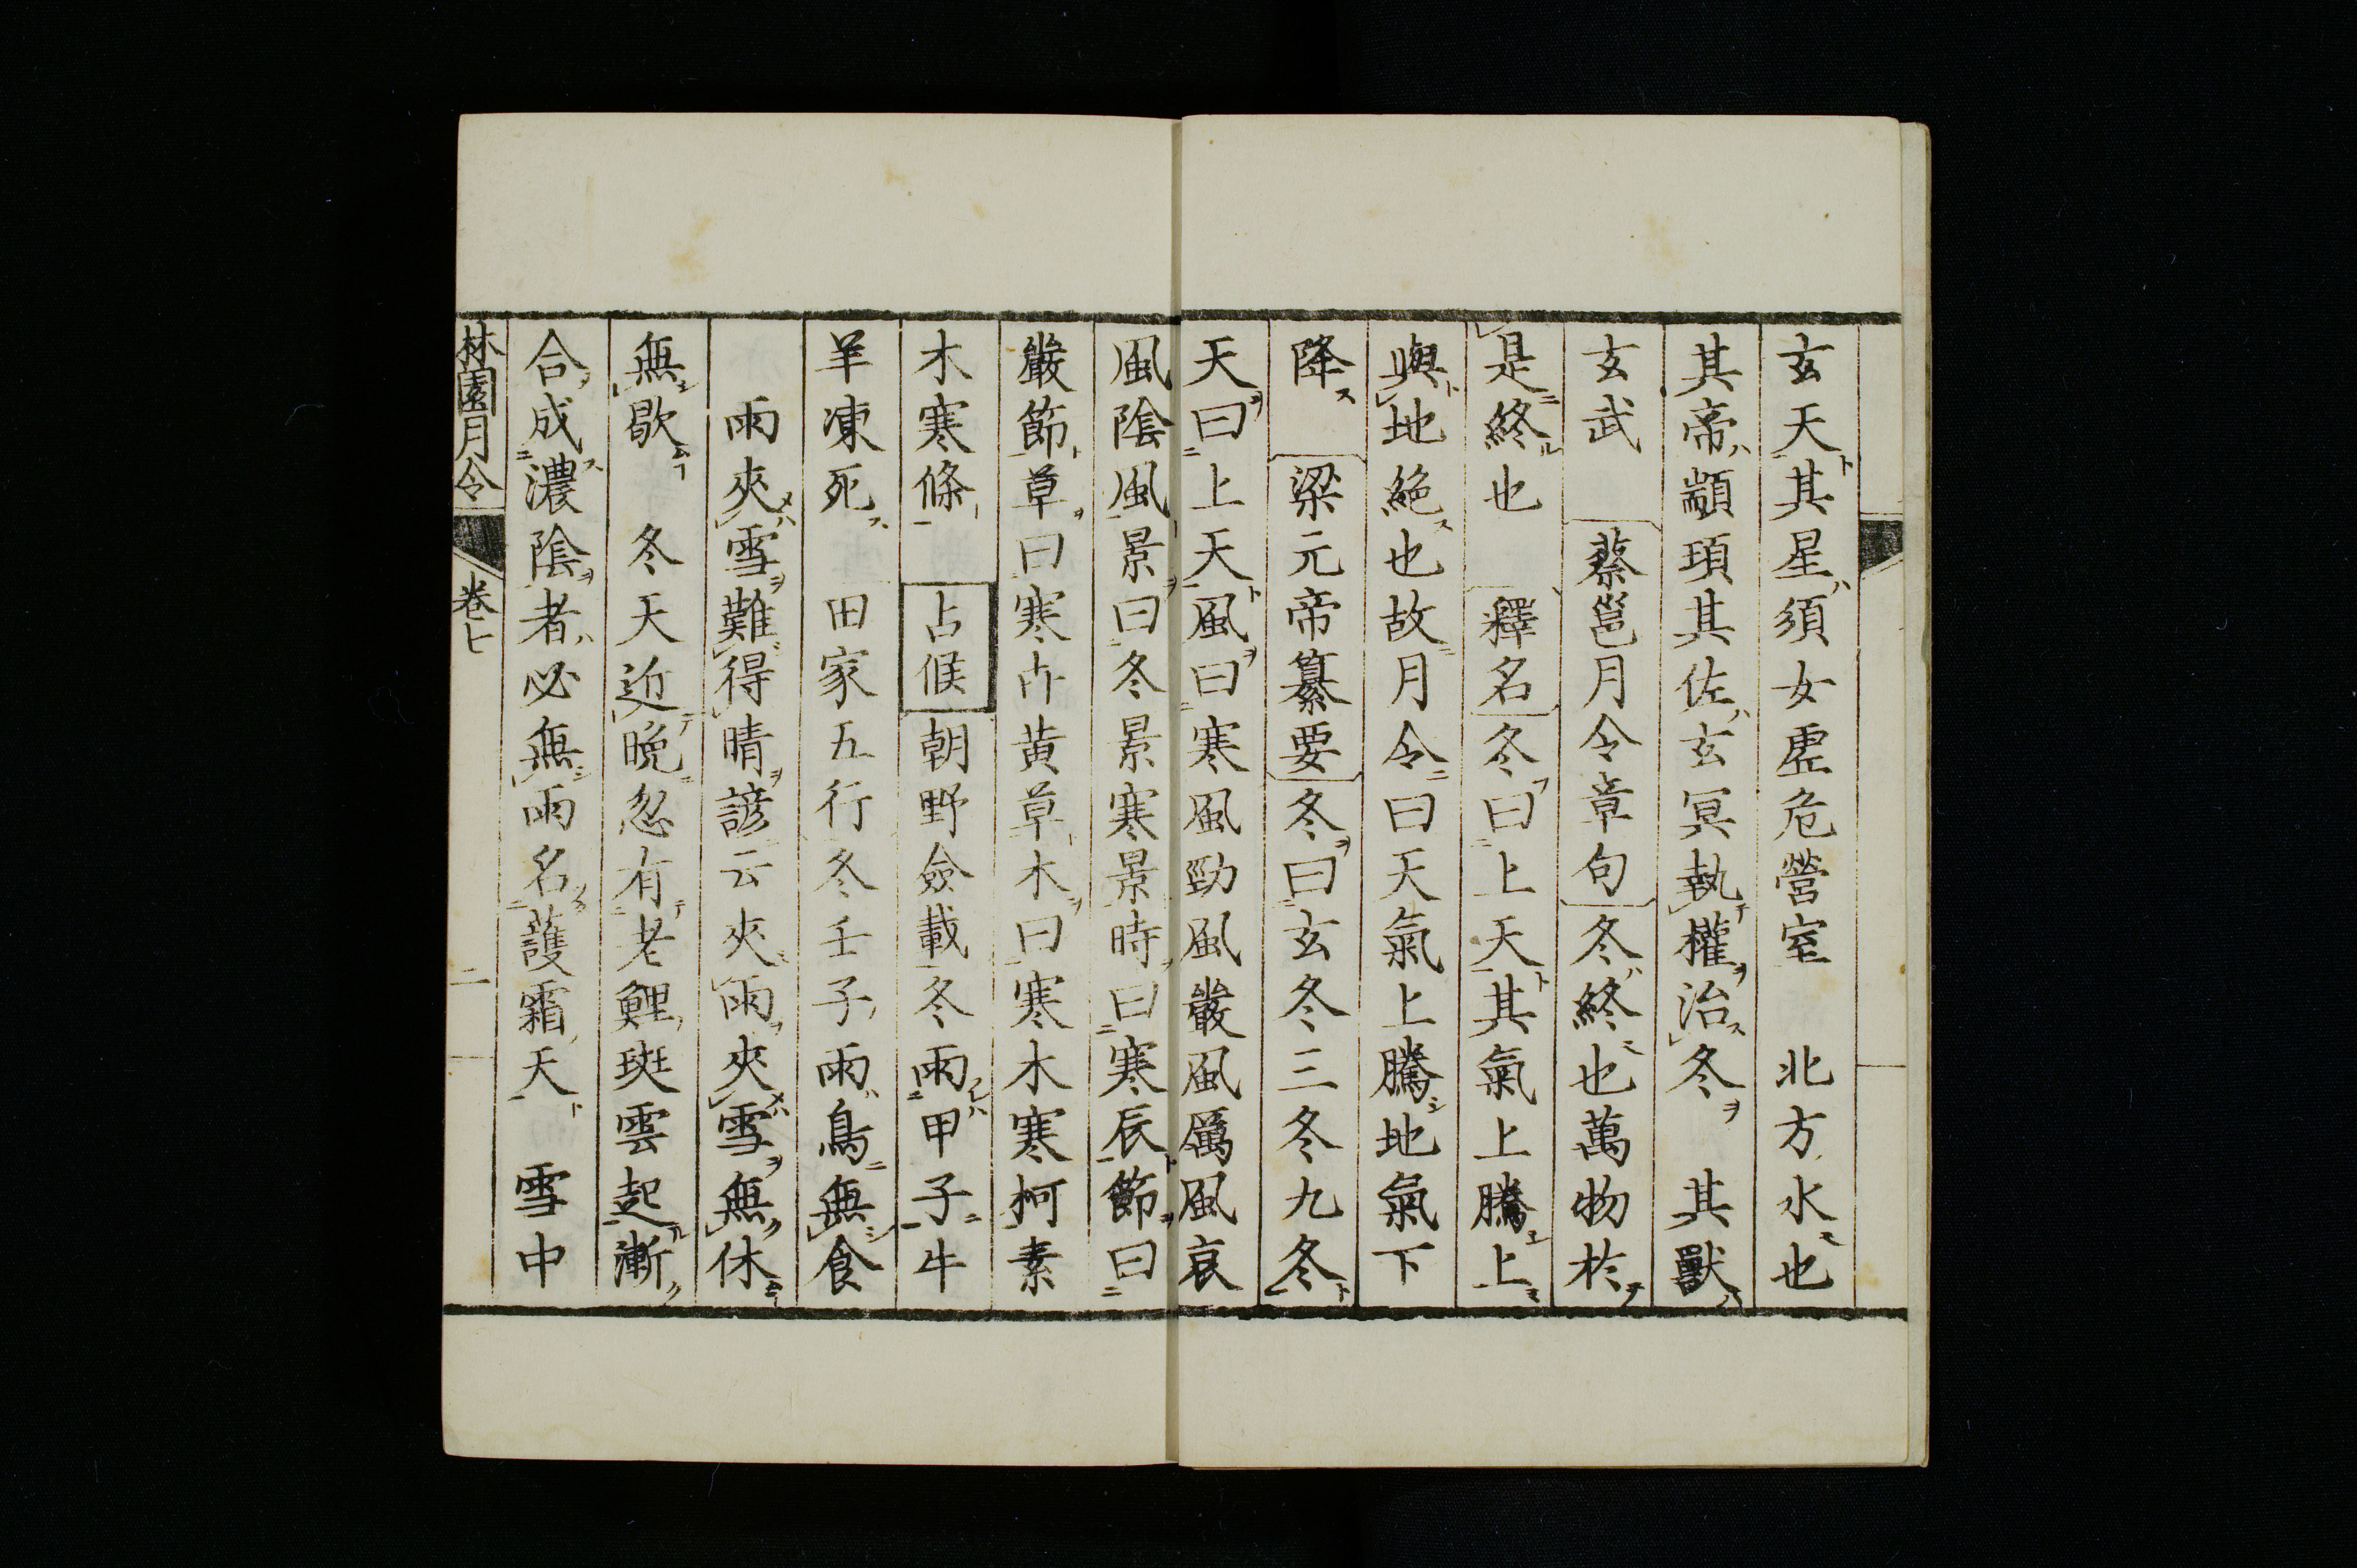 玄天其星須女虚危營室　北方水也
其帝顓頊其佐玄冥執權治冬　其獸
玄武　蔡邕月令章句冬終也萬物於
是終也　釋名冬曰上天其氣上騰上
與地絶也故月令曰天氣上騰地氣下
降　梁元帝纂要冬曰玄冬三冬九冬
天曰上天風曰寒風勁風嚴風厲風哀
風陰風景曰冬景寒景時曰寒辰節曰
嚴節草曰寒卉黄草木曰寒木寒柯素
木寒條　占候朝野僉載冬雨甲子牛
羊凍死　田家五行冬壬子雨鳥無食
雨夾雪難得晴諺云夾雨夾雪無休
無歇　冬天近晩忽有老鯉斑雲起漸
合成濃陰者必無雨名護霜天　雪中
林園月令　卷七　二